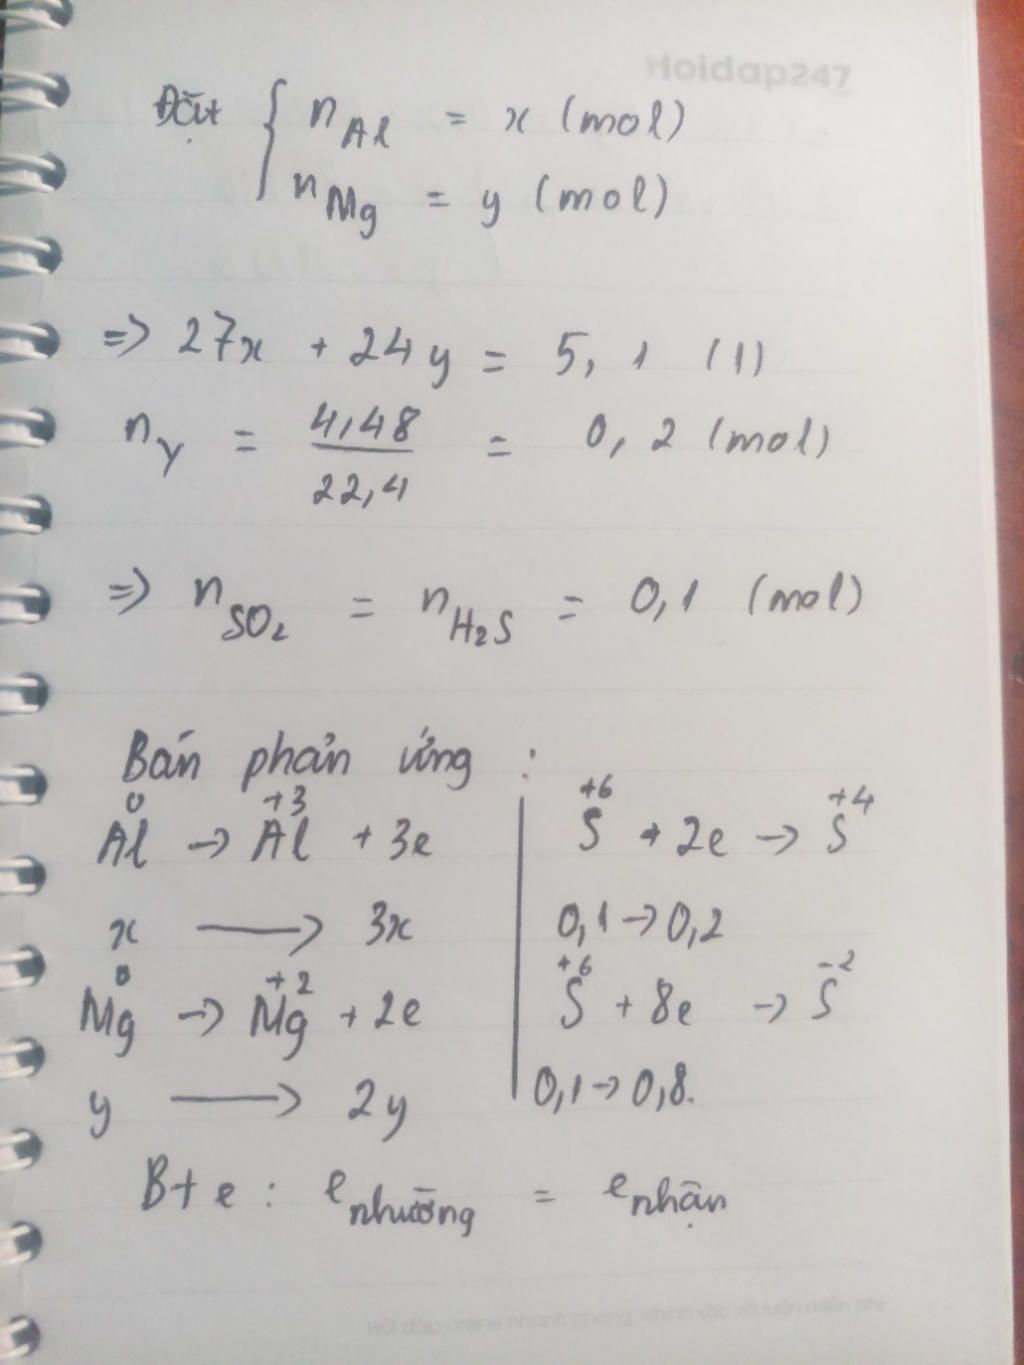 Hoidap247
Đặt { n Al = x (mol)
n Mg = y (mol)
=> 27x + 24y = 5,1 (1)
n Y = 4,48 / 22,4 = 0,2 (mol)
=> n SO2 = n H2S = 0,1 (mol)
Bán phản ứng :
0 Al -> +3 Al + 3e | +6 S + 2e -> +4 S
x -> 3x | 0,1 -> 0,2
0 Mg -> +2 Mg + 2e | +6 S + 8e -> -2 S
y -> 2y | 0,1 -> 0,8.
Bt e : e nhường = e nhận
Hỏi đáp online nhanh chóng, chính xác và luôn miễn phí